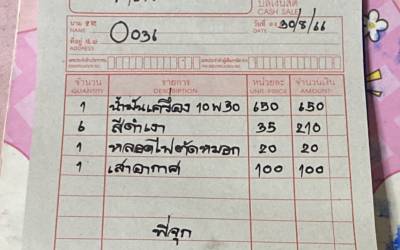 บิลเงินสด
CASH SALE
นาม นาย
NAME 0036 วันที่ 30/8/66
DATE
ที่อยู่
ADDRESS
จำนวน รายการ หน่วยละ จำนวนเงิน
QUANTITY DESCRIPTION UNIT-PRICE AMOUNT
1 น้ำมันเครื่อง 10W30 650 650
6 สีดำเงา 35 210
1 หลอดไฟตัดหมอก 20 20
1 เสาอากาศ 100 100
พี่จุก